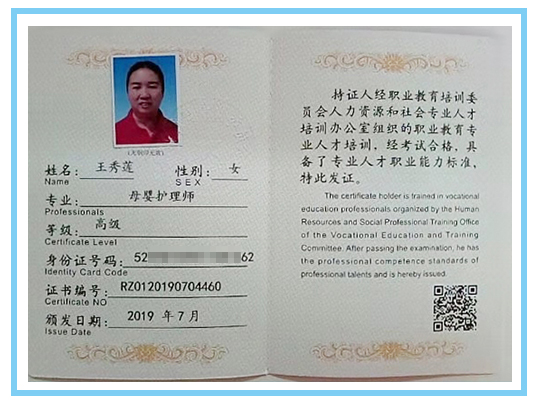 (无钢印无效)
姓名：王秀莲 性别：女
Name SEX
专业：母婴护理师
Professionals
等级：高级
Certificate Level
身份证号码：52 62
Identity Card Code
证书编号：RZ0120190704460
Certificate NO
颁发日期：2019 年 7 月
Issue Date
持证人经职业教育培训委
员会人力资源和社会专业人才
培训办公室组织的职业教育专
业人才培训，经考试合格，具
备了专业人才职业能力标准，
特此发证。
The certificate holder is trained in vocational
education professionals organized by the Human
Resources and Social Professional Training Office
of the Vocational Education and Training
Committee. After passing the examination, he has
the professional competence standards of
professional talents and is hereby issued.